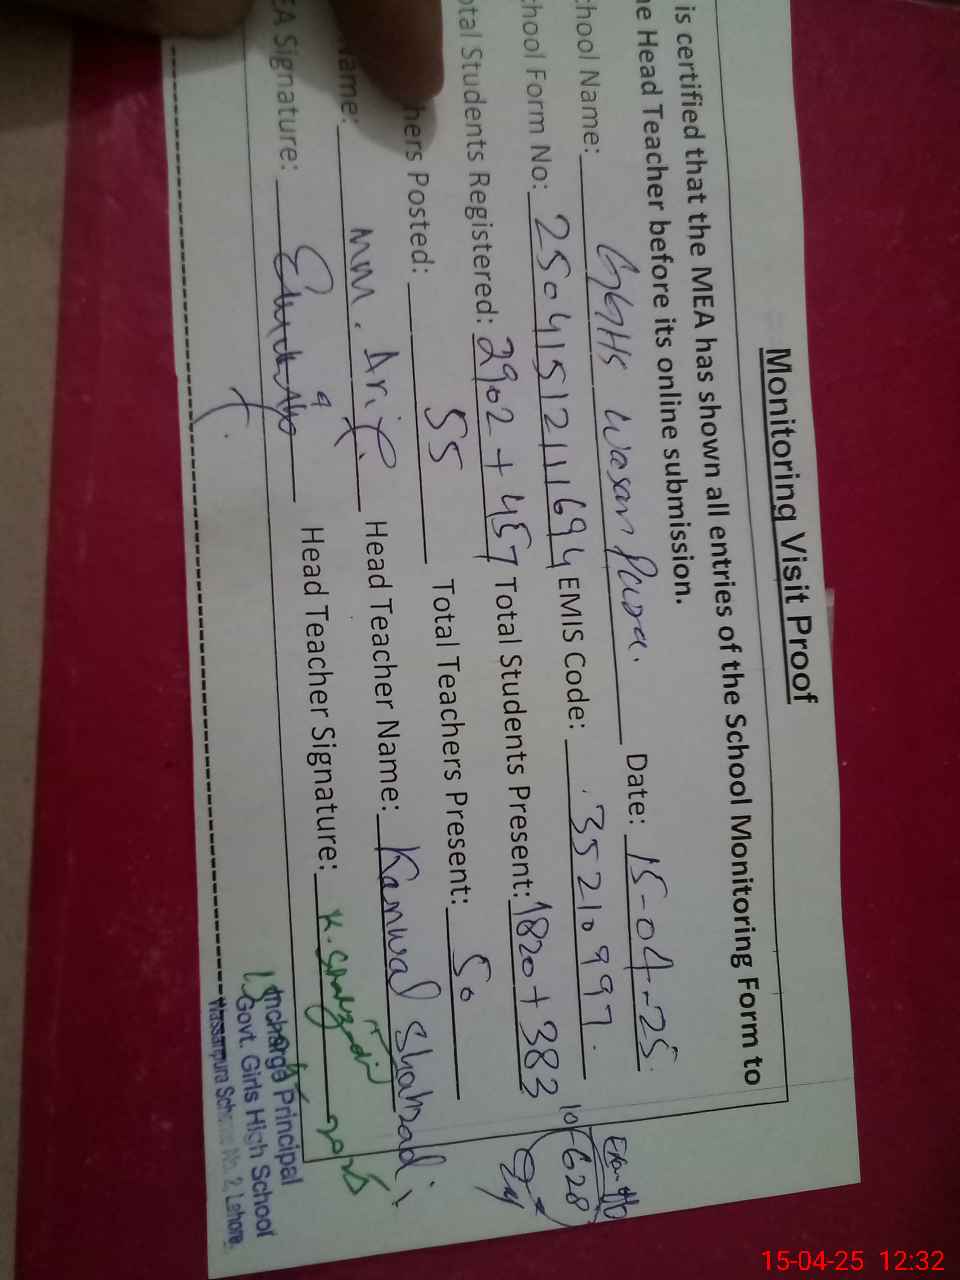 Monitoring Visit Proof
is certified that the MEA has shown all entries of the School Monitoring Form to
e Head Teacher before its online submission.
chool Name: GGHS Wasanpura. Date: 15-04-25
chool Form No: 25041512111694 EMIS Code: 35210997.
otal Students Registered: 2902 + 457 Total Students Present: 1820 + 383
628
hers Posted: 55 Total Teachers Present: 50
Name: MM. Arif. Head Teacher Name: Kanwal Shahzadi
EA Signature: Head Teacher Signature: K. Shahzadi
Incharge Principal
Govt. Girls High School
Wassanpura Scheme No. 2, Lahore.
15-04-25 12:32